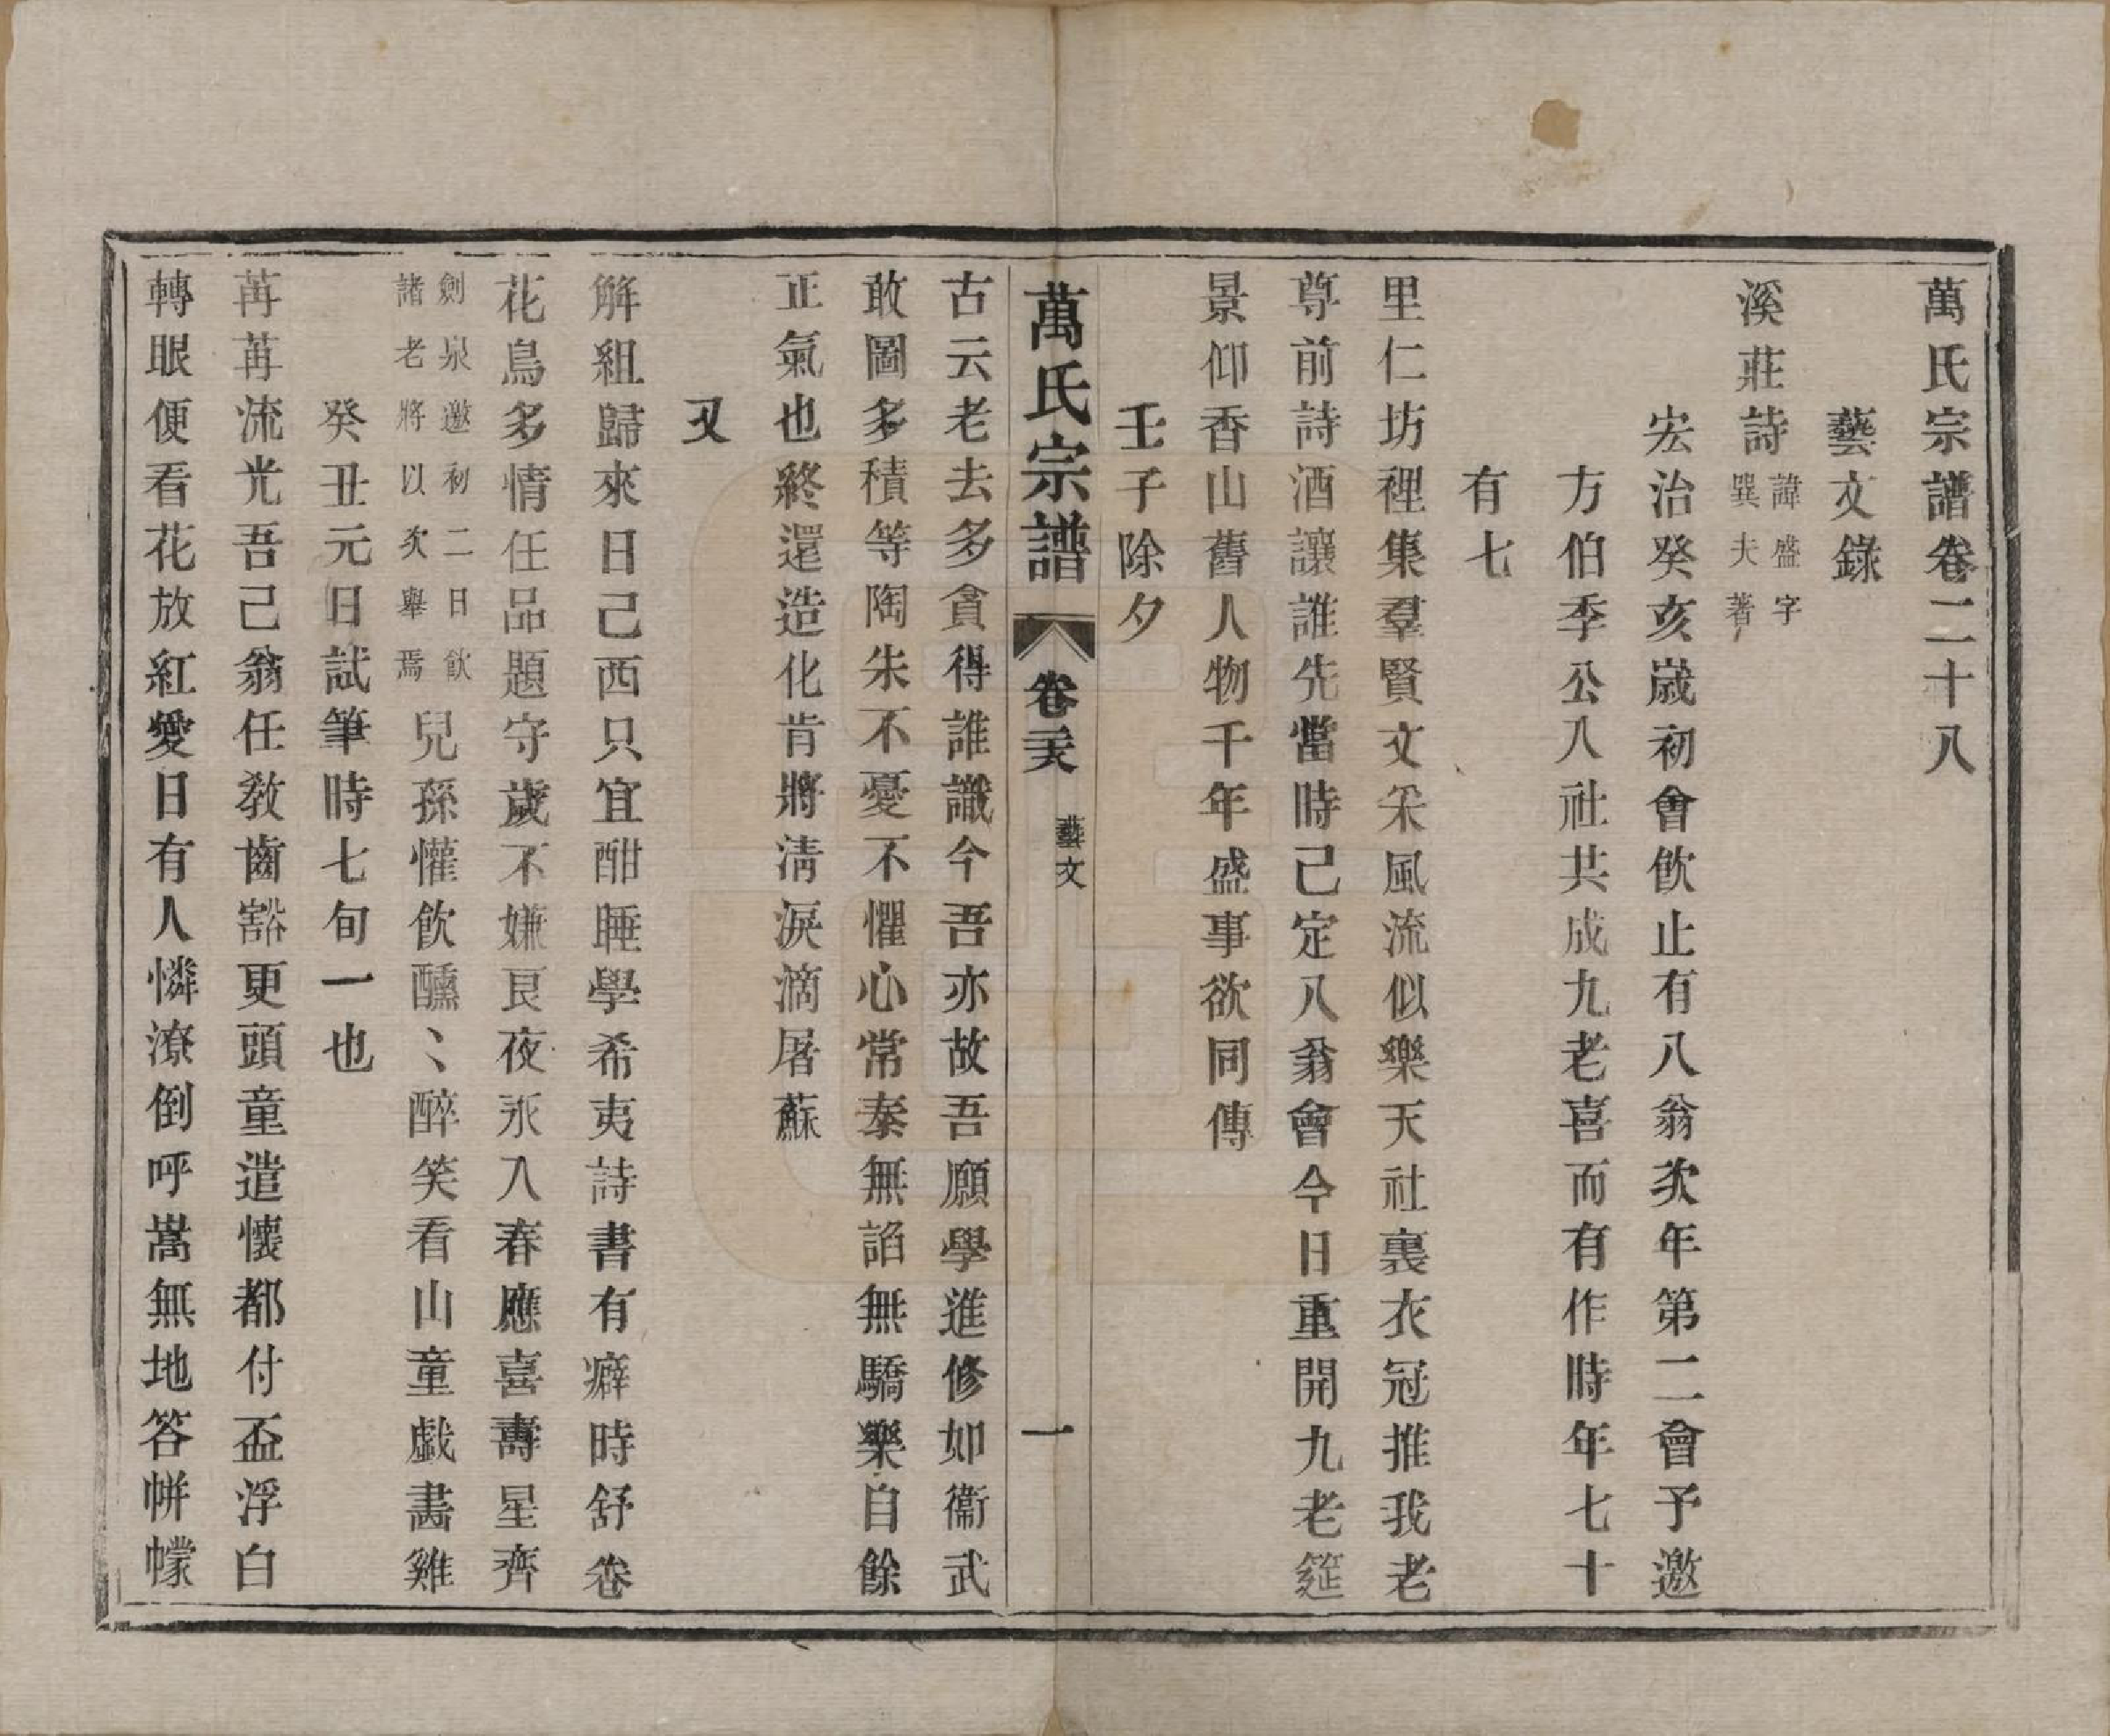 萬氏宗譜卷二十八
藝文錄
溪莊詩
諱盛字
巽夫著
宏治癸亥歲初會飲止有八翁次年第二會予邀
方伯季公八社共成九老喜而有作時年七十
有七
里仁坊裡集羣賢文采風流似樂天社裏衣冠推我老
尊前詩酒讓誰先當時己定八翁會今日重開九老筵
景仰香山舊人物千年盛事欲同傳
壬子除夕
萬氏宗譜
卷二十八
藝文
一
古云老去多貪得誰識今吾亦故吾願學進修如衞武
敢圖多積等陶朱不憂不懼心常泰無諂無驕樂自餘
正氣也終還造化肯將淸淚滴屠蘇
又
解組歸來日己西只宜酣睡學希夷詩書有癖時舒卷
花鳥多情任品題守歲不嫌艮夜永入春應喜壽星齊
劍泉邀初二日飲
諸老將以次舉焉
兒孫懽飮醺〻醉笑看山童戱畵雞
癸丑元日試筆時七旬一也
苒苒流光吾己翁任教齒豁更頭童遣懷都付盃浮白
轉眼便看花放紅愛日有人憐潦倒呼嵩無地答帡幪